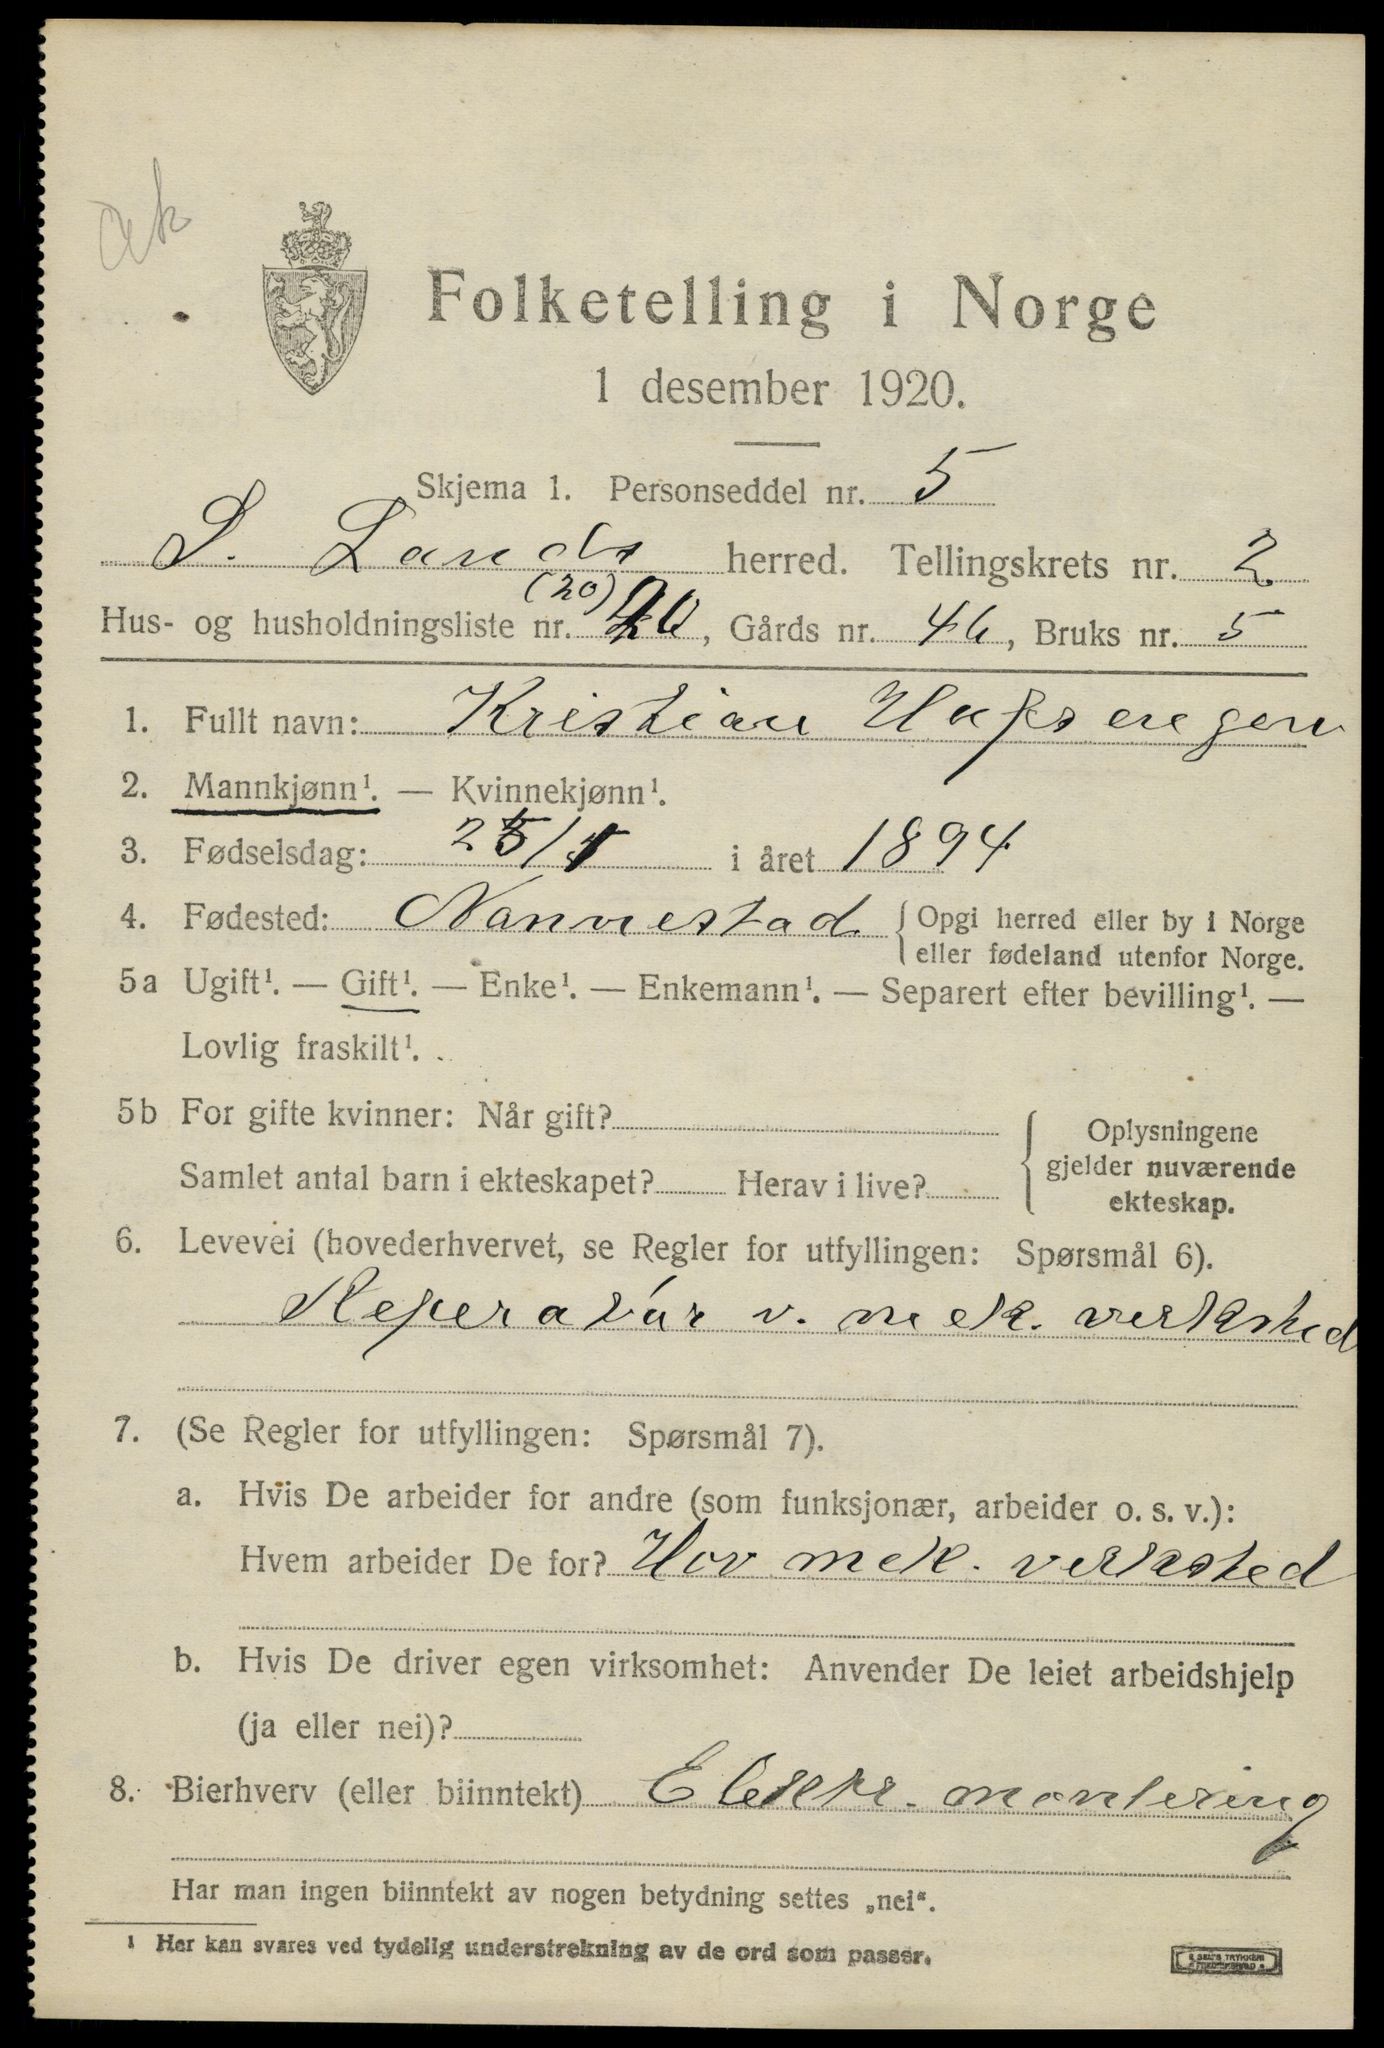 Folketelling i Norge
1 desember 1920.
Skjema 1. Personseddel nr. 5
S. Lands herred. Tellingskrets nr. 2
(20)
Hus- og husholdningsliste nr. 20, Gårds nr. 46, Bruks nr. 5
1. Fullt navn: Kristian
2. Mannkjønn¹. — Kvinnekjønn¹.
3. Fødselsdag: i året 1894
4. Fødested: Nannestad { Opgi herred eller by i Norge
eller fødeland utenfor Norge.
5a Ugift¹. — Gift¹. — Enke¹. — Enkemann¹. — Separert efter bevilling¹. —
Lovlig fraskilt¹.
5b For gifte kvinner: Når gift?
Samlet antal barn i ekteskapet? Herav i live?
{ Oplysningene
gjelder nuværende
ekteskap.
6. Levevei (hovederhvervet, se Regler for utfyllingen: Spørsmål 6).
Reperatør v. mek. verksted
7. (Se Regler for utfyllingen: Spørsmål 7).
a. Hvis De arbeider for andre (som funksjonær, arbeider o. s. v.):
Hvem arbeider De for? Hov mek. verksted
b. Hvis De driver egen virksomhet: Anvender De leiet arbeidshjelp
(ja eller nei)?
8. Bierhverv (eller biinntekt) Elektr. montering
Har man ingen biinntekt av nogen betydning settes „nei“.
¹ Her kan svares ved tydelig understrekning av de ord som passer.